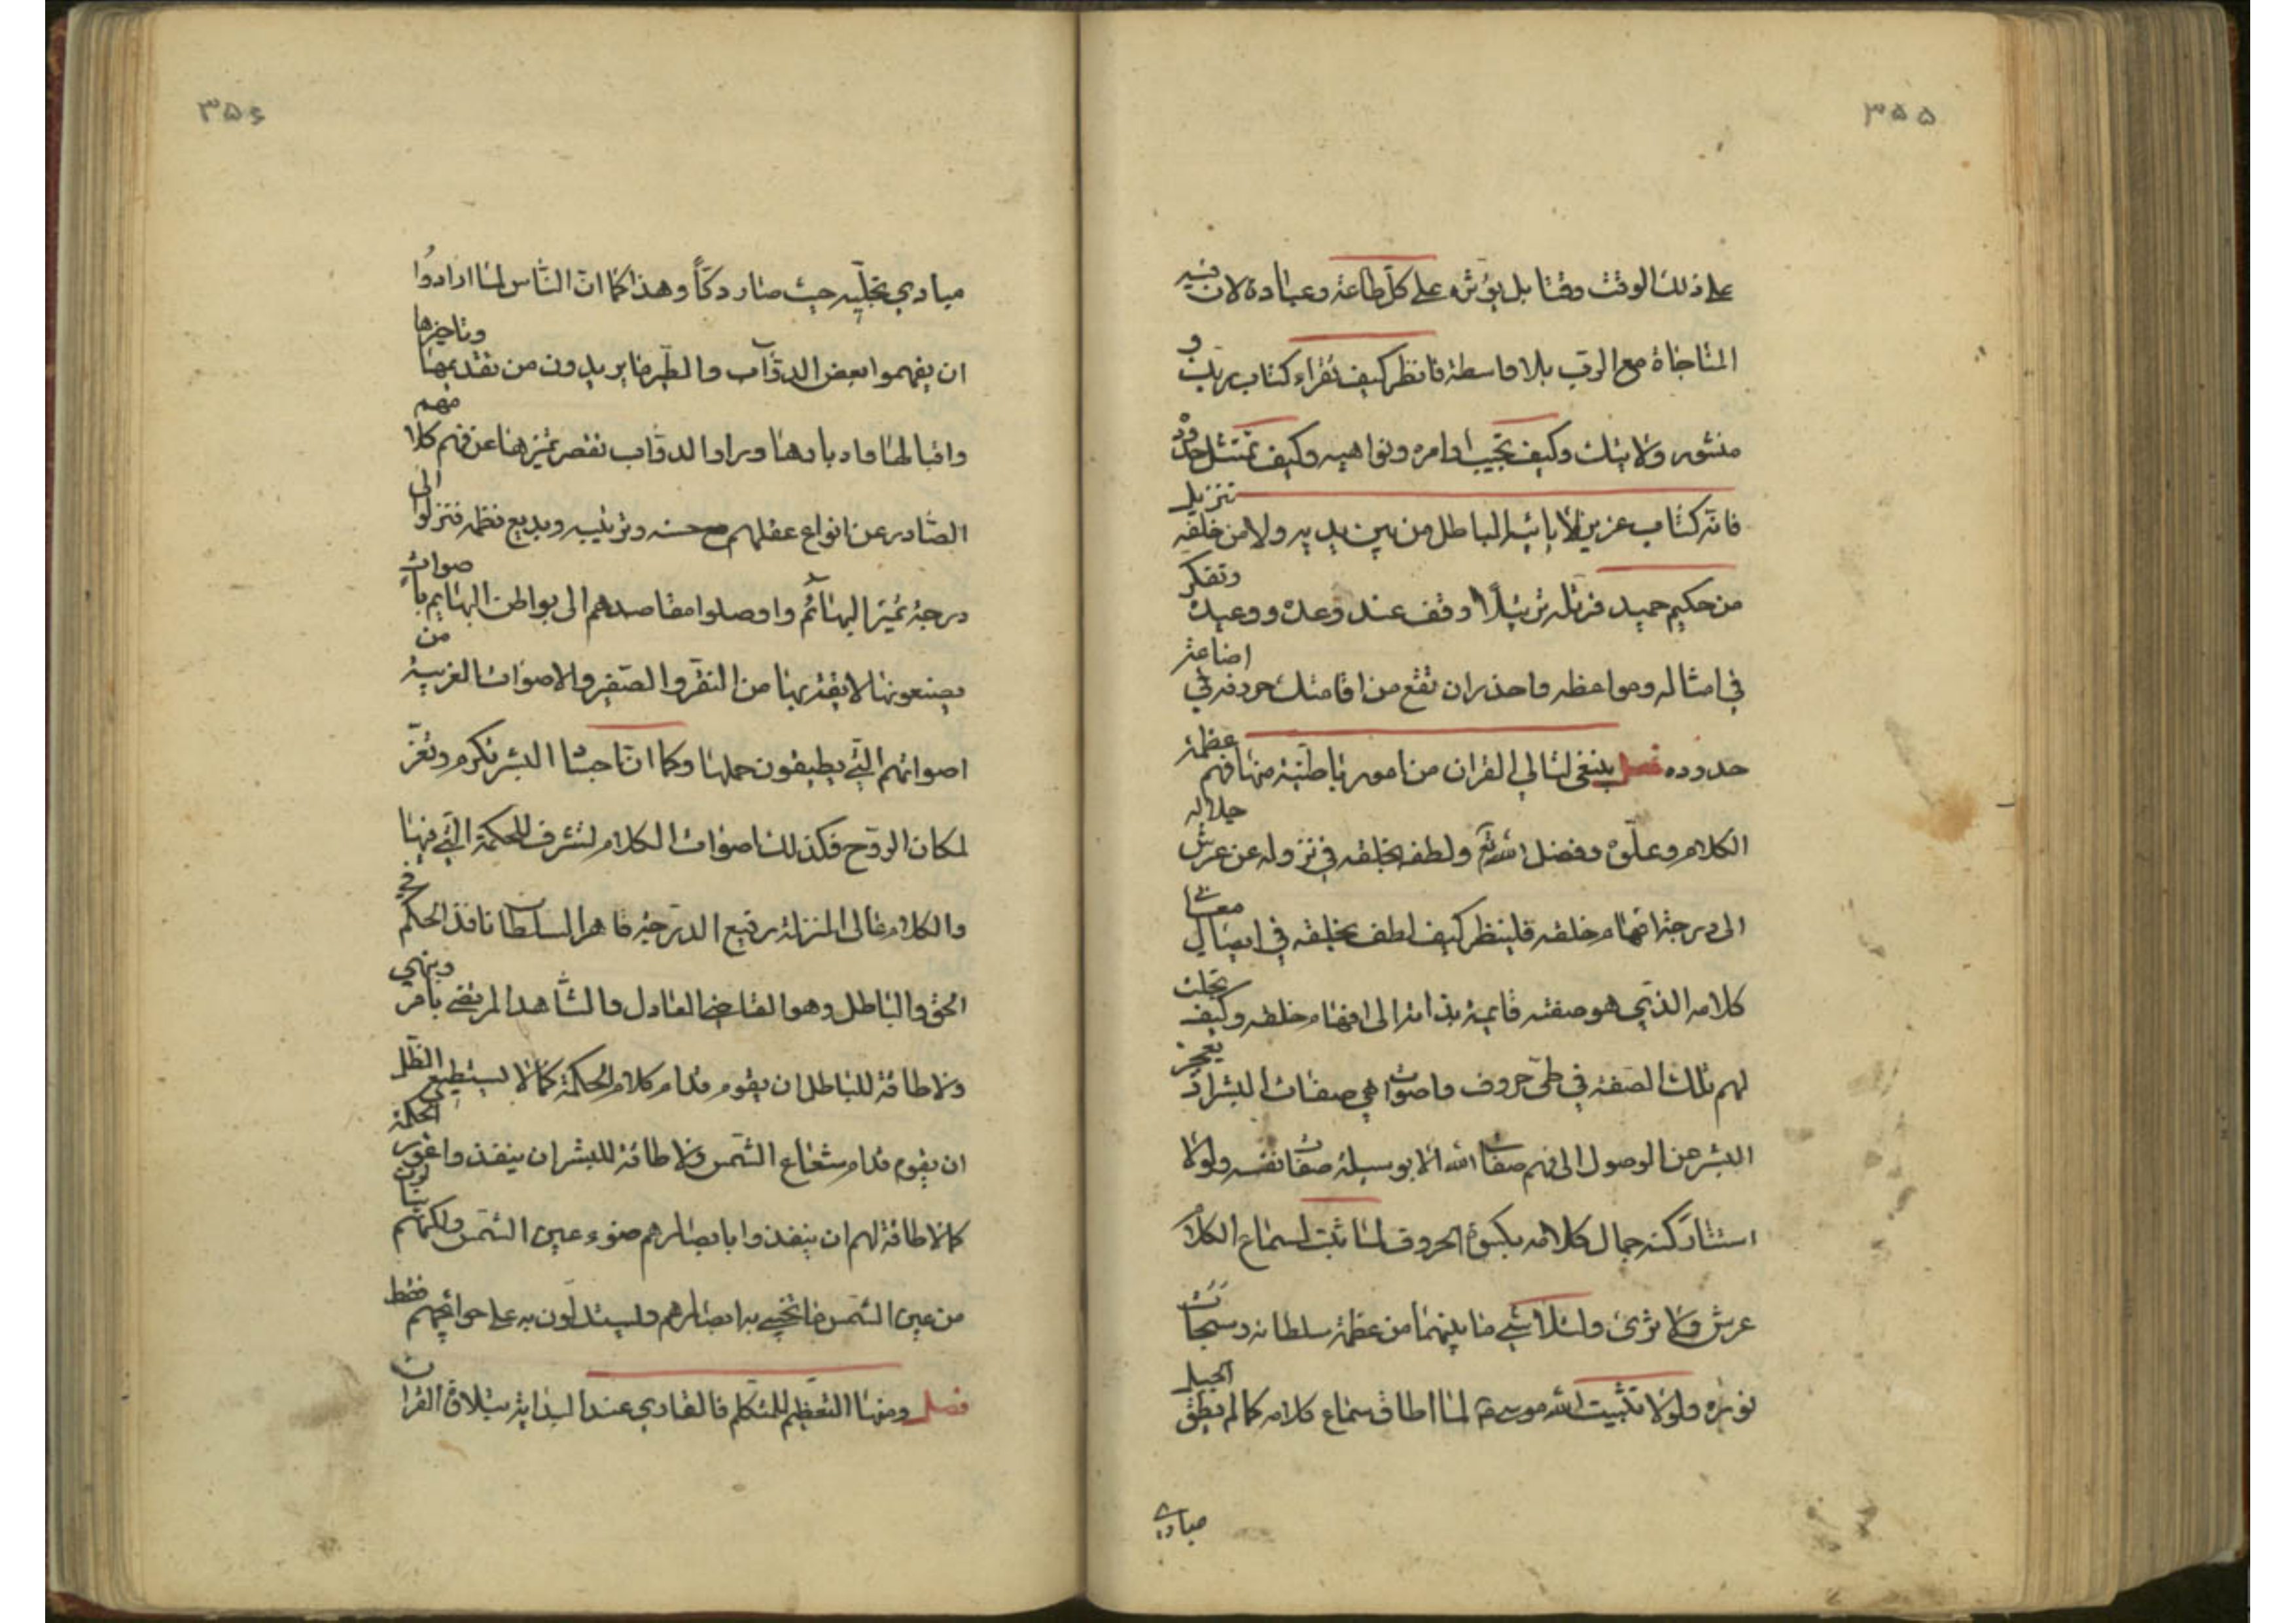 ۳۵۵
على ذلك الوقت وقتا بل يؤثره على كل طاعة وعبادة لان فيه
المناجاة مع الرب بلا واسطة فانظر كيف تقراء كتاب ربك و
منشور ولايتك وكيف تجيب اوامره ونواهيه وكيف تمتثل حدوده
فانه كتاب عزيز لا ياتيه الباطل من بين يديه ولا من خلفه تنزيل
من حكيم حميد فرتله ترتيلا وقف عند وعده ووعيده وتفكر
في امثاله ومواعظه واحذر ان تقع من اقامتك حروفه في اضاعة
حدوده فصل ينبغى لتالي القران من امور باطنية منها فهم عظمة
الكلام وعلوه وفضل الله تع ولطفه بخلقه في نزوله عن عرش جلاله
الى درجة افهام خلقه فلينظر كيف لطف بخلقه في ايصال معاني
كلامه الذي هو صفته قايمة بذاته الى افهام خلقه وكيف تجلت
لهم تلك الصفة في طي حروف واصوات هي صفات البشر اذ يعجز
البشر عن الوصول الى فهم صفات الله الا بوسيلة صفات نفسه ولولا
استتار كنه جمال كلامه بكسوة الحروف لما ثبت لسماع الكلام
عرش ولا ثرى ولتلاشي ما بينهما من عظمة سلطانه وسبحات
نوره ولولا تثبيت الله موسى ع لما اطاق سماع كلامه كما لم يطق الجبل
مبادي
۳۵۶
مبادي تجليه حيث صار دكا وهذا كما ان الناس لما ارادوا
ان يفهموا بعض الدواب والطير ما يريدون من تقديمها وتاخيرها
واقبالها وادبارها وراوا الدواب تقصر تميزها عن فهم كلامهم
الصادر عن انواع عقلهم مع حسنه وترتيبه وبديع نظمه فنزلوا الى
درجة تميز البهائم واوصلوا مقاصدهم الى بواطن البهايم باصوات
يصنعونها لايقة بها من النقر والصفير والاصوات الغريبة من
اصواتهم التي يطيقون حملها وكما ان اجساد البشر تكرم وتعز
لمكان الروح فكذلك اصوات الكلام لتشرف للحكمة التي فيها
والكلام عالى المنزلة رفيع الدرجة قاهر السلطان نافذ الحكم في
الحق والباطل وهو القاضي العادل والشاهد المرتضى يامر وينهي
ولا طاقة للباطل ان يقوم قدام كلام الحكمة كما لا يستطيع الظل
ان يقوم قدام شعاع الشمس ولا طاقة للبشر ان ينفذوا غور الحكمة
كما لا طاقة لهم ان ينفذوا بابصارهم ضوء عين الشمس ولكنهم ينالون
من عين الشمس ما تحيى به ابصارهم ويستدلون به على حوائجهم فقط
فصل ومنها التعظيم للمتكلم فالقاري عند البداية بتلاوة القران